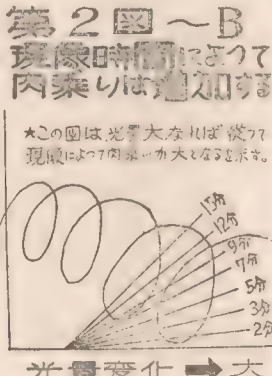 第2図〜B
現像時間によって
肉乗りは増加する
★この図は光量大なれば從って
現像によって肉乗りが大となるを示す。
15分
12分
9分
7分
5分
3分
2分
光量変化➡大